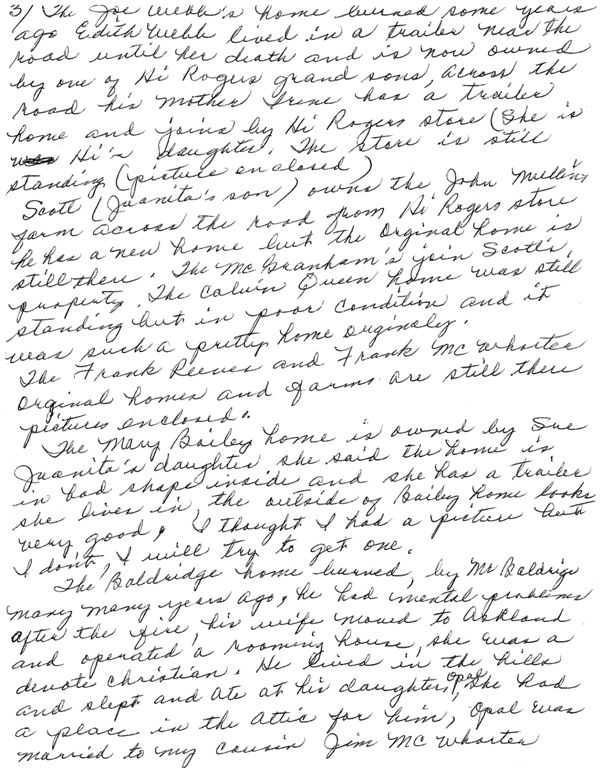 3) The Joe Webb's home burned some years
ago Edith Webb lived in a trailer near the
road until her death and is now owned
by one of Hi Rogers grand sons, across the
road his mother Irene has a trailer
home and joins by Hi Rogers store (She is
Hi's daughter. The store is still
standing (picture enclosed)
Scott (Juanita's son) owns the John Mullins
farm across the road from Hi Rogers store
he has a new home but the Orginal home is
still there. The McGranham's join Scott's
property. The Calvin Queen home was still
standing but in poor condition and it
was such a pretty home originaley.
The Frank Reeves and Frank McWhorter
orginal homes and farms are still there
pictures enclosed.
The Mary Bailey home is owned by Sue
Juanita's daughter she said the home is
in bad shape inside and she has a trailer
she lives in, the outside of Bailey home looks
very good, I thought I had a picture but
I don't, I will try to get one.
The Baldridge home burned, by Mr Baldrige
many many years ago, he had mental problems
after the fire, his wife moved to Ashland
and operated a rooming house, she was a
devote christian. He lived in the hills
and slept and ate at his daughters, Opal She had
a place in the attic for him, Opal was
married to my cousin Jim McWhorter